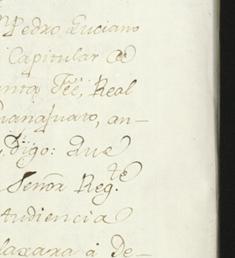 Pedro Luciano
Capitular de
Fée, Real
uanajuato, an-
Digo: Que
Señor Reg.te
Audiencia
laxara á De-